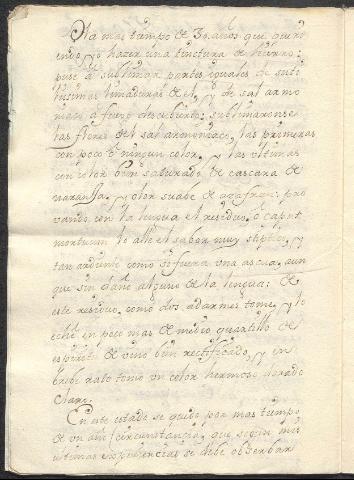 Ha mas tiempo de 30. años que quiri
endo yo hazer una tinctura de hierro;
puse à sublimar partes iguales de suti
lissimas limaduras de el, y de sal armo
niaco à fuego descubierto; sublimaronse
las flores del sal armoniaco, las primeras
con poco ò ningun color, y las ultimas
con color bien saturado de cascara de
naranja, y olor suabe de azafran: pro
vando con la lengua el residuo, ò caput
mortuum le allè el sabor muy stiptico, y
tan ardiente como si fuera una ascua, aun
que sin daño alguno de la lengua: de
este residuo, como dos adarmes tome, y lo
echè en poco mas de medio quartillo de
espiritu de vino bien rectificado, y en
brebe rato tomò un color hermoso dorado
claro.
En este estado se quedò por mas tiempo
de un año (circunstancia, que segun mis
ultimas experiencias se debe observar